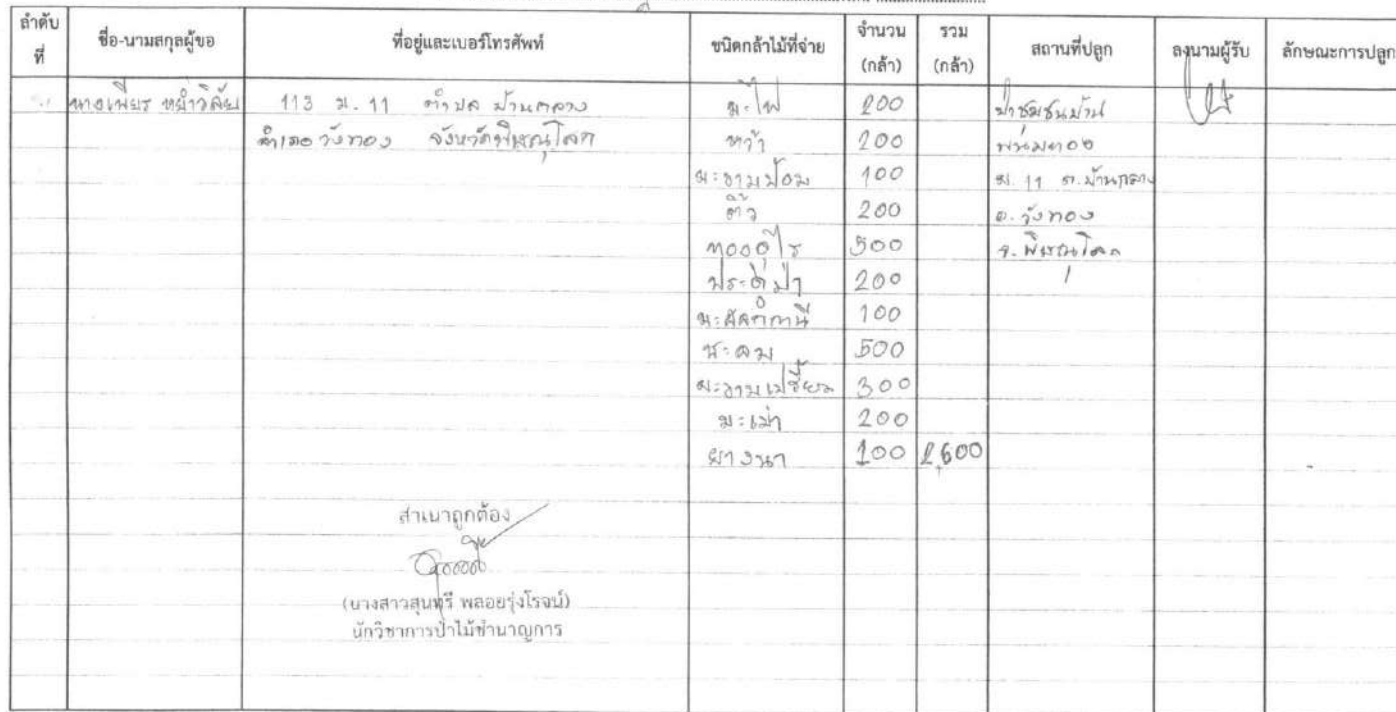 ลำดับที่ ชื่อ-นามสกุลผู้ขอ ที่อยู่และเบอร์โทรศัพท์ ชนิดกล้าไม้ที่จ่าย จำนวน (กล้า) รวม (กล้า) สถานที่ปลูก ลงนามผู้รับ ลักษณะการปลูก
นางเพียร 113 ม. 11 ตำบล บ้านกลาง มะไฟ 200 ป่าชุมชนบ้าน
อำเภอ วังทอง จังหวัดพิษณุโลก หว้า 200
มะขามป้อม 100 ม. 11 ต. บ้านกลาง
ติ้ว 200 อ. วังทอง
500 จ. พิษณุโลก
ประดู่ป่า 200
100
500
มะขามเปรี้ยว 300
มะเม่า 200
ยางนา 100 2,600
สำเนาถูกต้อง
(นางสาวสุนทรี พลอยรุ่งโรจน์)
นักวิชาการป่าไม้ชำนาญการ